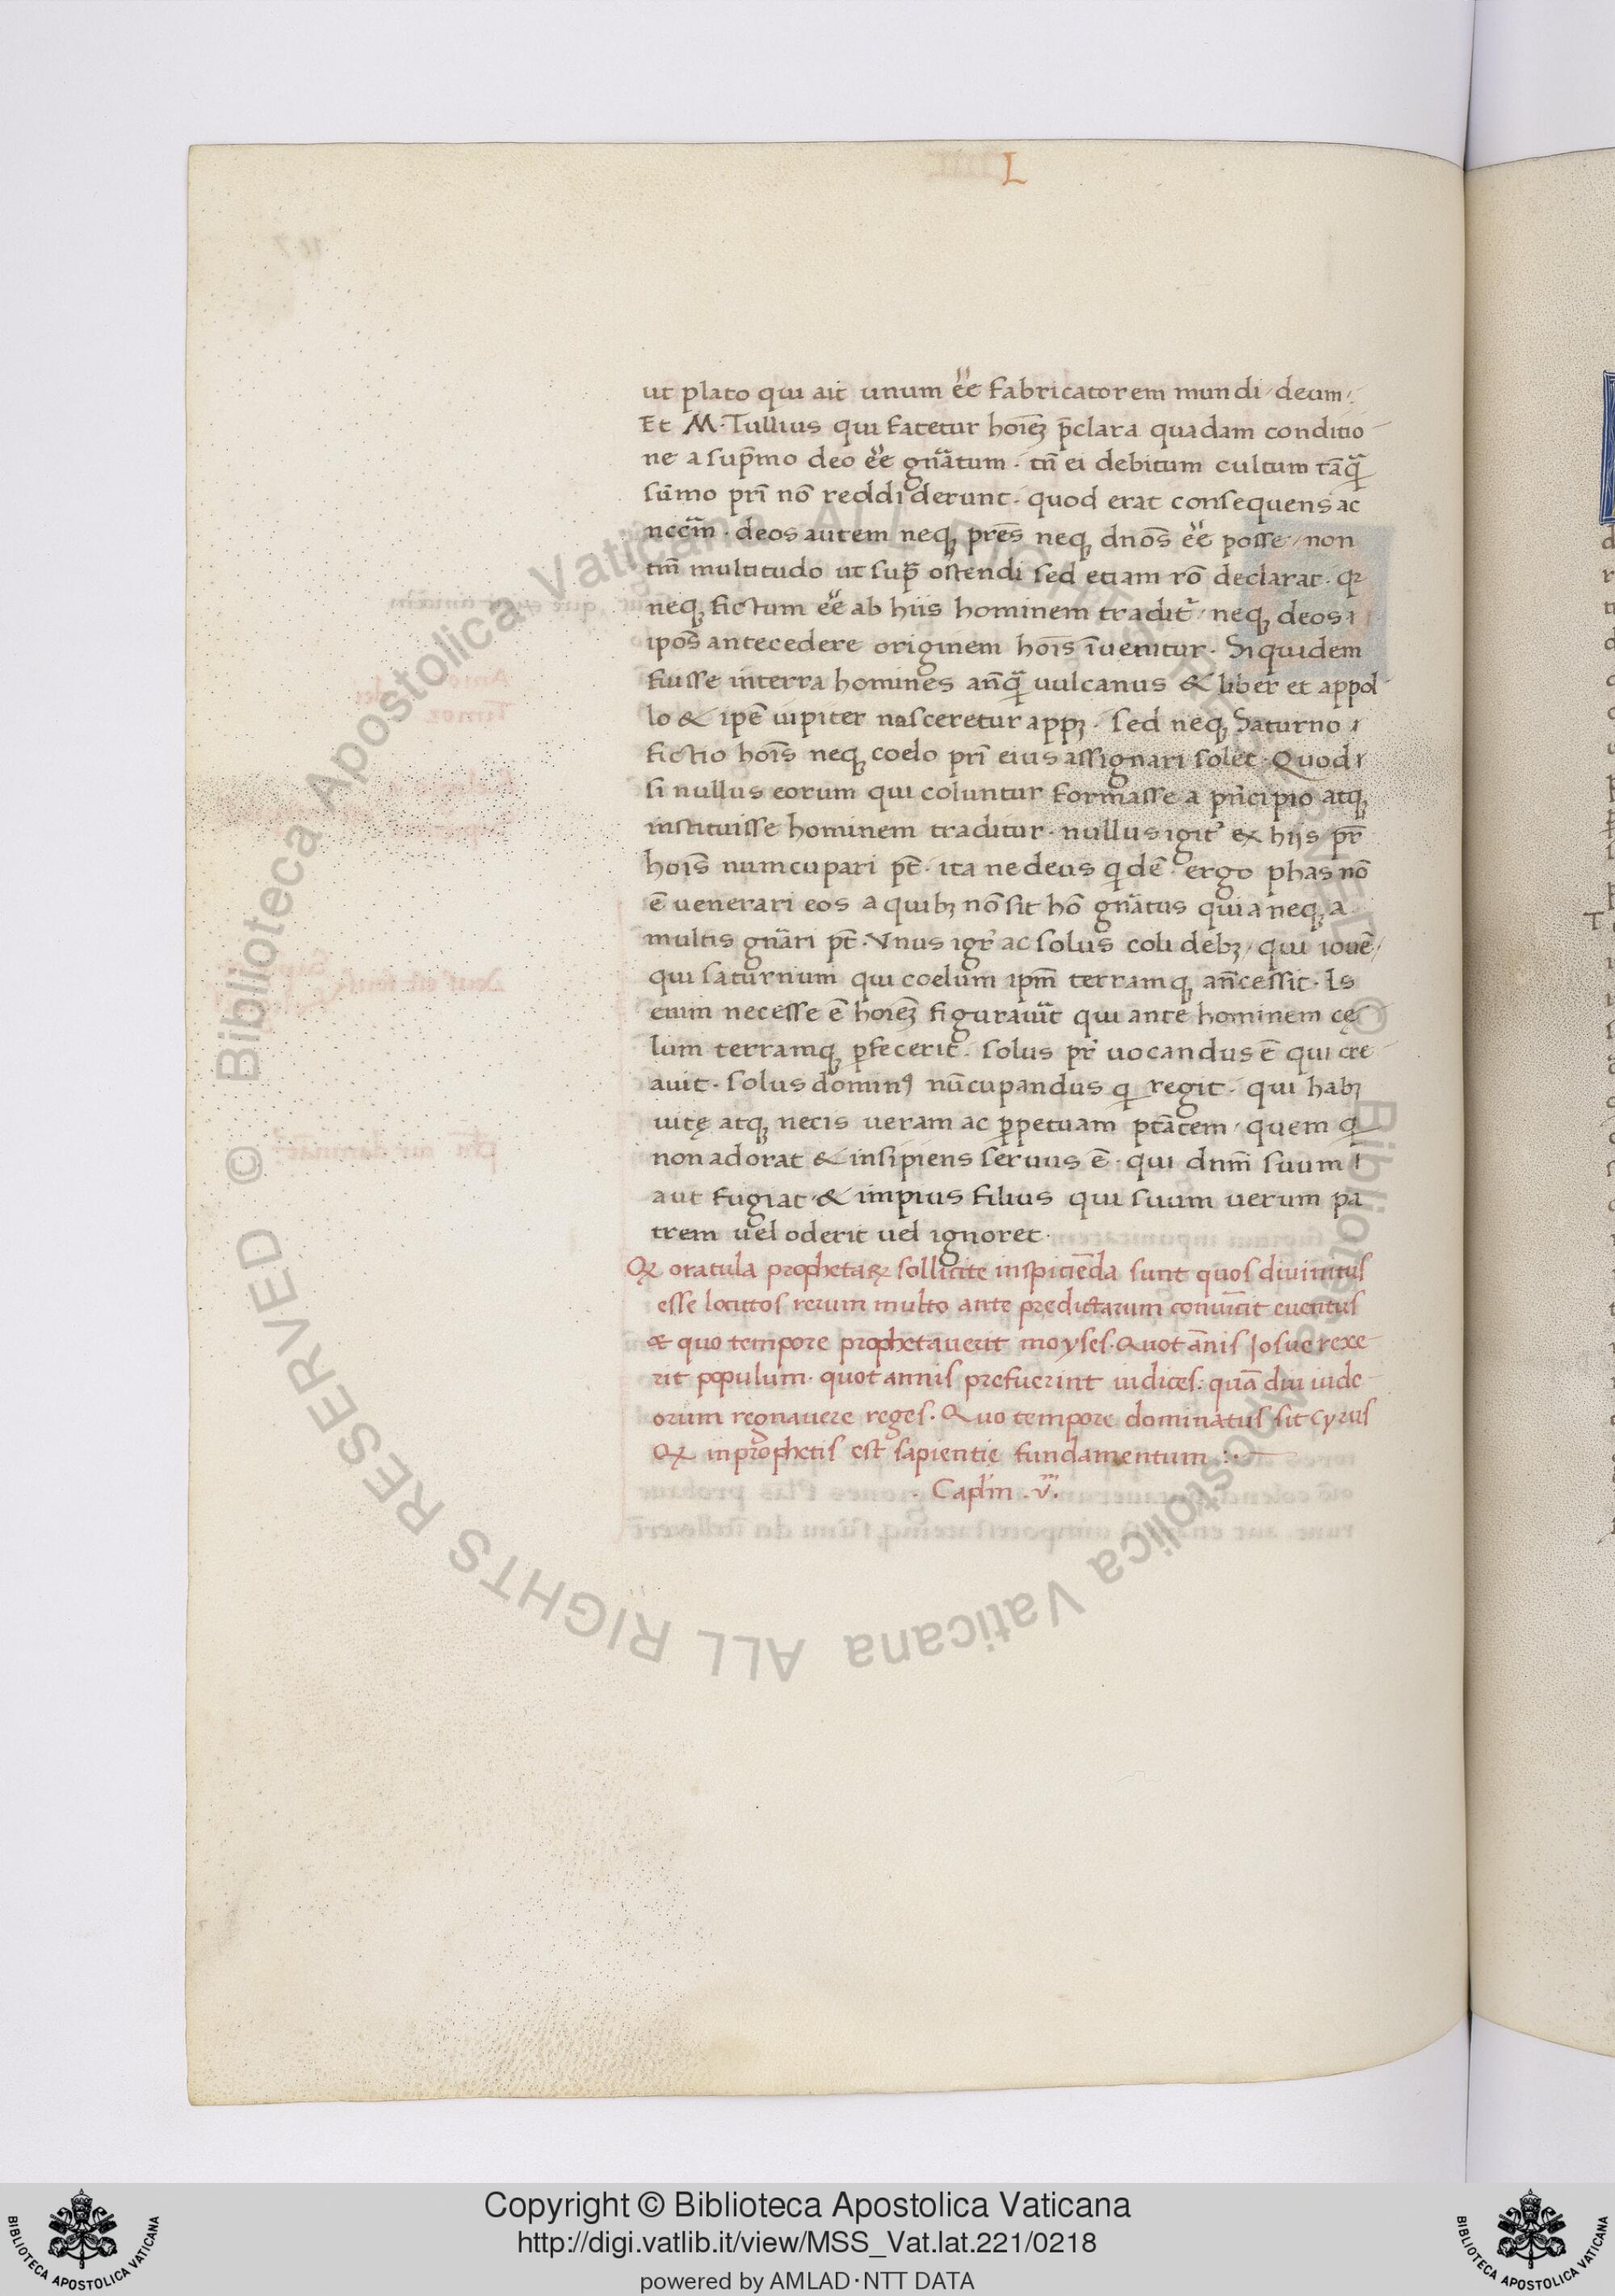 L
ut plato qui ait unum ēe fabricatorem mundi / deum /.
Et M. Tullius qui fatetur hoīeꝫ p̄clara quadam conditio-
ne a sup̄mo deo ēe gnātum . tn̄ ei debitum cultum tāꝗ̄
sūmo pr̄i nō reddiderunt . quod erat consequens ac
neccīm . deos autem neqꝫ pr̄es neqꝫ dnōs ēe posse / non
tm̄ multitudo ut sup̄ ostendi sed etiam rō declarat . qꝛ
neqꝫ fictum ēe ab hiis hominem tradit᷑ / neqꝫ deos
ip̄os antecedere originem hoīs īuenitur . Siquidem
fuisse interra homines an̄ꝗ̄ uulcanus & liber et appol-
lo & ip̄e iupiter nasceretur appꝫ . sed neqꝫ Saturno
fictio hoīs neqꝫ coelo pr̄i eius assignari solet . Quod
si nullus eorum qui coluntur formasse a pn̄cipio atqꝫ
instituisse hominem traditur . nullus igit᷑ ex hijs pr̄
hoīs numcupari pt̄ . ita ne deus ꝗdē . ergo phas nō
ē uenerari eos a quibꝫ nō sit hō gnātus quia neqꝫ a
multis gnāri pt̄ . Vnus igr̄ ac solus coli debꝫ / qui iouē /
qui saturnum qui coelum ipm̄ terramqꝫ an̄cessit . Is
enim necesse ē hoīeꝫ figurauīt qui ante hominem cę-
lum terramqꝫ ꝑfecerit . solus pr̄ uocandus ē qui cre-
auit . solus dominꝰ nūcupandus ꝗ regit . qui habꝫ
uitę atqꝫ necis ueram ac ꝑpetuam ptātem / quem ꝗ
non adorat & insipiens seruus ē . qui dnm̄ suum
aut fugiat & impius filius qui suum uerum pa
trem uel oderit uel ignoret .
Qꝫ oracula prophetaꝝ sollicite inspiciēda sunt quos diuinitus
esse locutos rerum multo ante predictarum conuīcit euentus
& quo tempore prophetauerit moyses . Quot ānis Josue rexe-
rit populum . quot annis prefuerint iudices : quā diu iude-
orum regnauere reges . Quo tempore dominatus sit cyrus
Qꝫ inprophetis est sapientię fundamentum :·
. Caplm̄ . v̄ .
Copyright © Biblioteca Apostolica Vaticana
http://digi.vatlib.it/view/MSS_Vat.lat.221/0218
powered by AMLAD·NTT DATA
BIBLIOTECA APOSTOLICA VATICANA
BIBLIOTECA APOSTOLICA VATICANA
© Biblioteca Apostolica Vaticana ALL RIGHTS RESERVED © Biblioteca Apostolica Vaticana ALL RIGHTS RESERVED